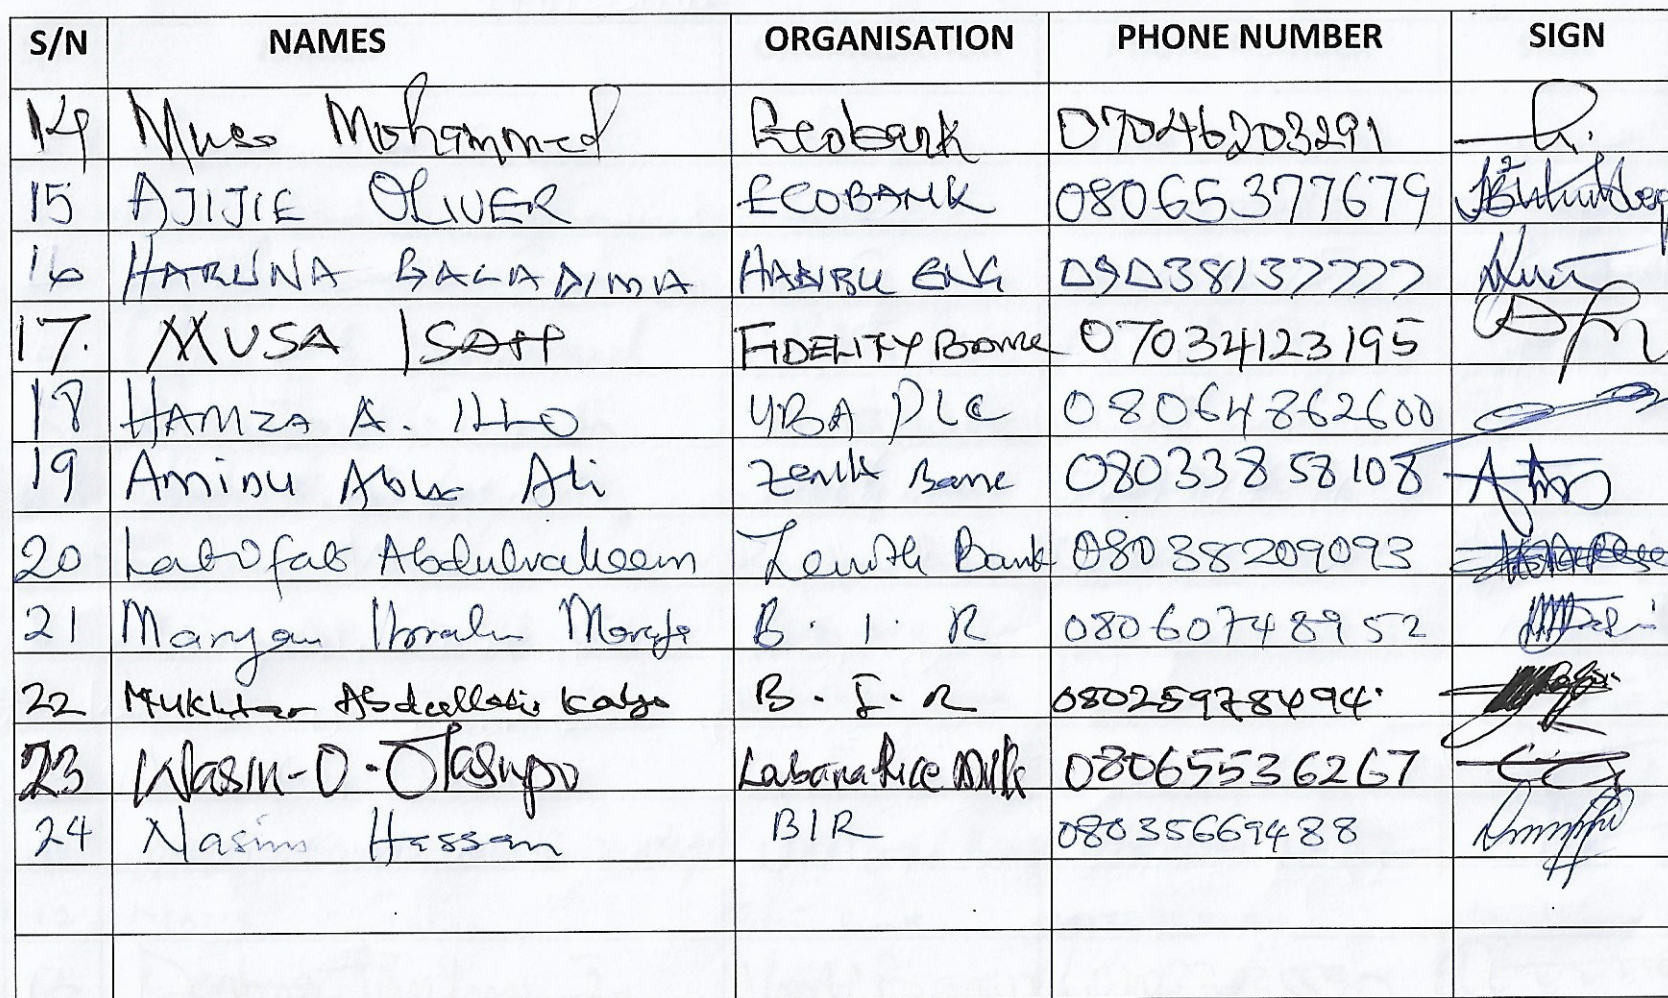 S/N NAMES ORGANISATION PHONE NUMBER SIGN
14 Musa Mohammed Ecobank 07046203291
15 AJIJIE OLIVER ECOBANK 08065377679
16 HARUNA GALADIMA HABIBU ENG 09038137777
17. MUSA ISAH FIDELITY BANK 07034123195
18 HAMZA A. ILLO UBA PLC 08064862600
19 AMINU ABUB Ali Zenith Bank 08033858108
20 Latifat Abdulraheem Zenith Bank 08038209093
21 Maryam Ibrahim B. I. R 08060748952
22 Mukhtar Abdullahi B. I. R 08025978494
23 Wasiu-O-Olasupo Labana Rice Mills 08065536267
24 Nasiru Hassan BIR 08035669488